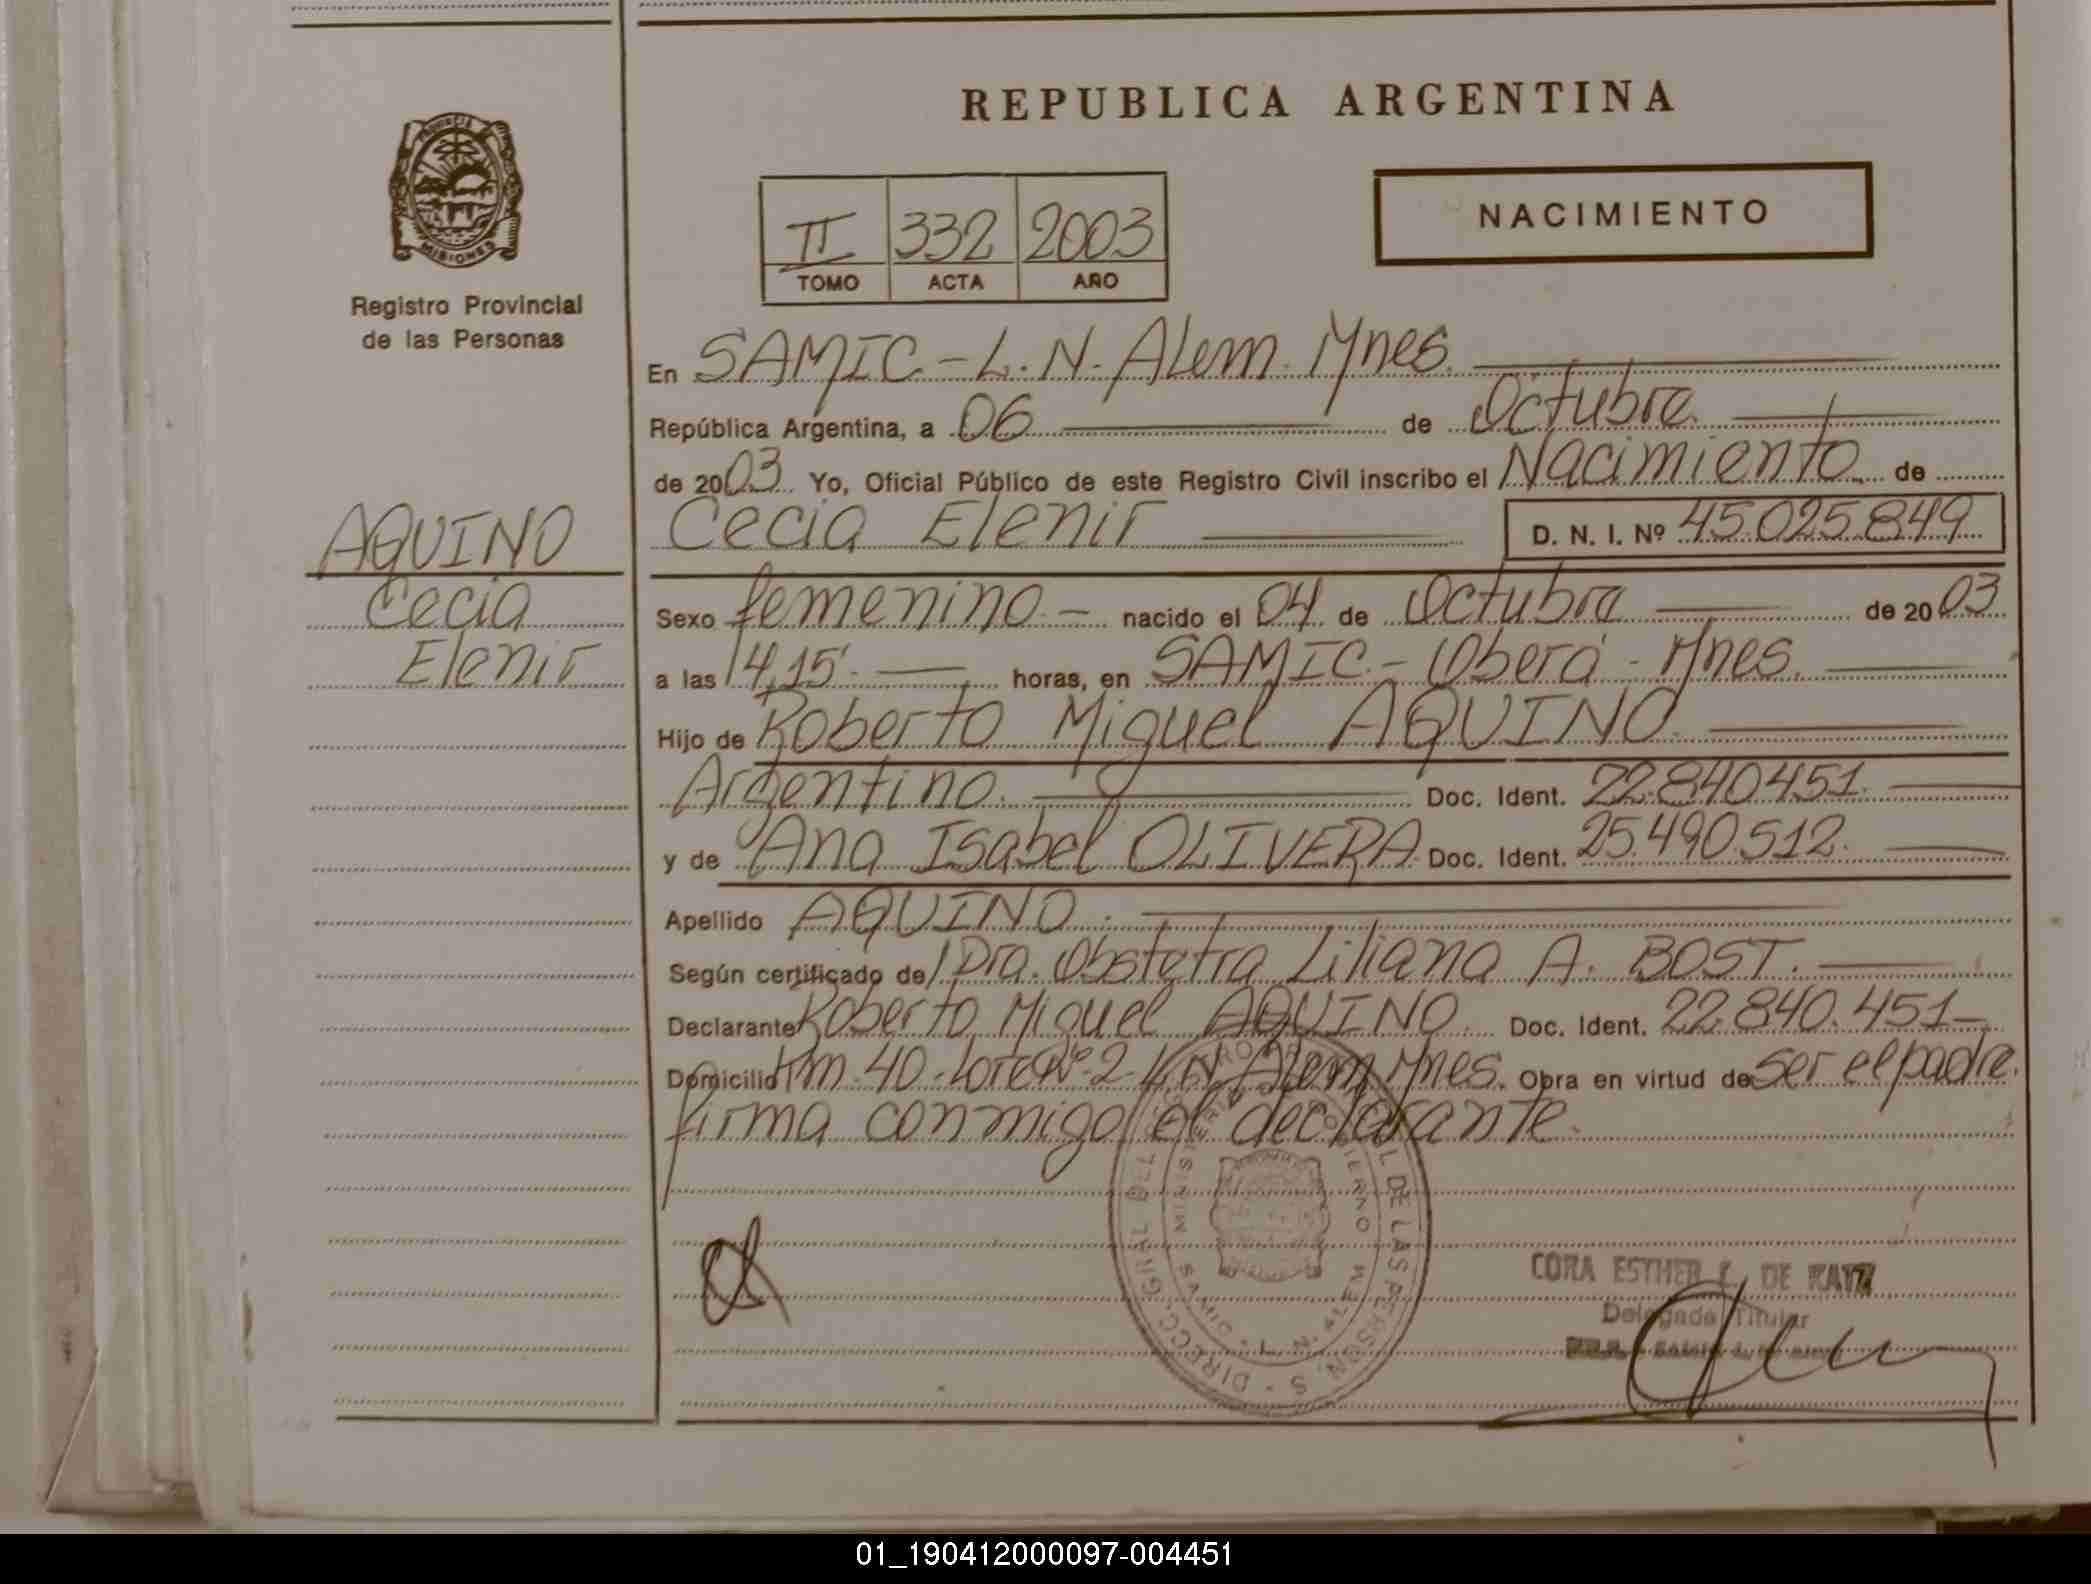 REPUBLICA ARGENTINA
PROVINCIA
MISIONES
Registro Provincial
de las Personas
II 332 2003
TOMO ACTA AÑO
NACIMIENTO
En SAMIC - L. N. Alem. Mnes.
República Argentina, a 06 de Octubre.
de 2003 Yo, Oficial Público de este Registro Civil inscribo el Nacimiento de
AQUINO
Cecia
Elenir
Cecia Elenir D. N. I. Nº 45.025.849
Sexo femenino - nacido el 04 de Octubre de 2003
a las 14,15' horas, en SAMIC - Oberá - Mnes.
Hijo de Roberto Miguel AQUINO
Argentino. Doc. Ident. 22.840.451.
y de Ana Isabel OLIVERA Doc. Ident. 25.490.512.
Apellido AQUINO.
Según certificado de Dra. Obstetra Liliana A. BOST.
Declarante Roberto Miguel AQUINO Doc. Ident. 22.840.451-
Domicilio Km. 40. Lote Nº 2 - L N Alem Mnes. Obra en virtud de ser el padre.
firma conmigo el declarante.
MINISTERIO DE GOBIERNO
SAMIC - L. N. ALEM
CORA ESTHER DE KATZ
Delegada Titular
01_190412000097-004451